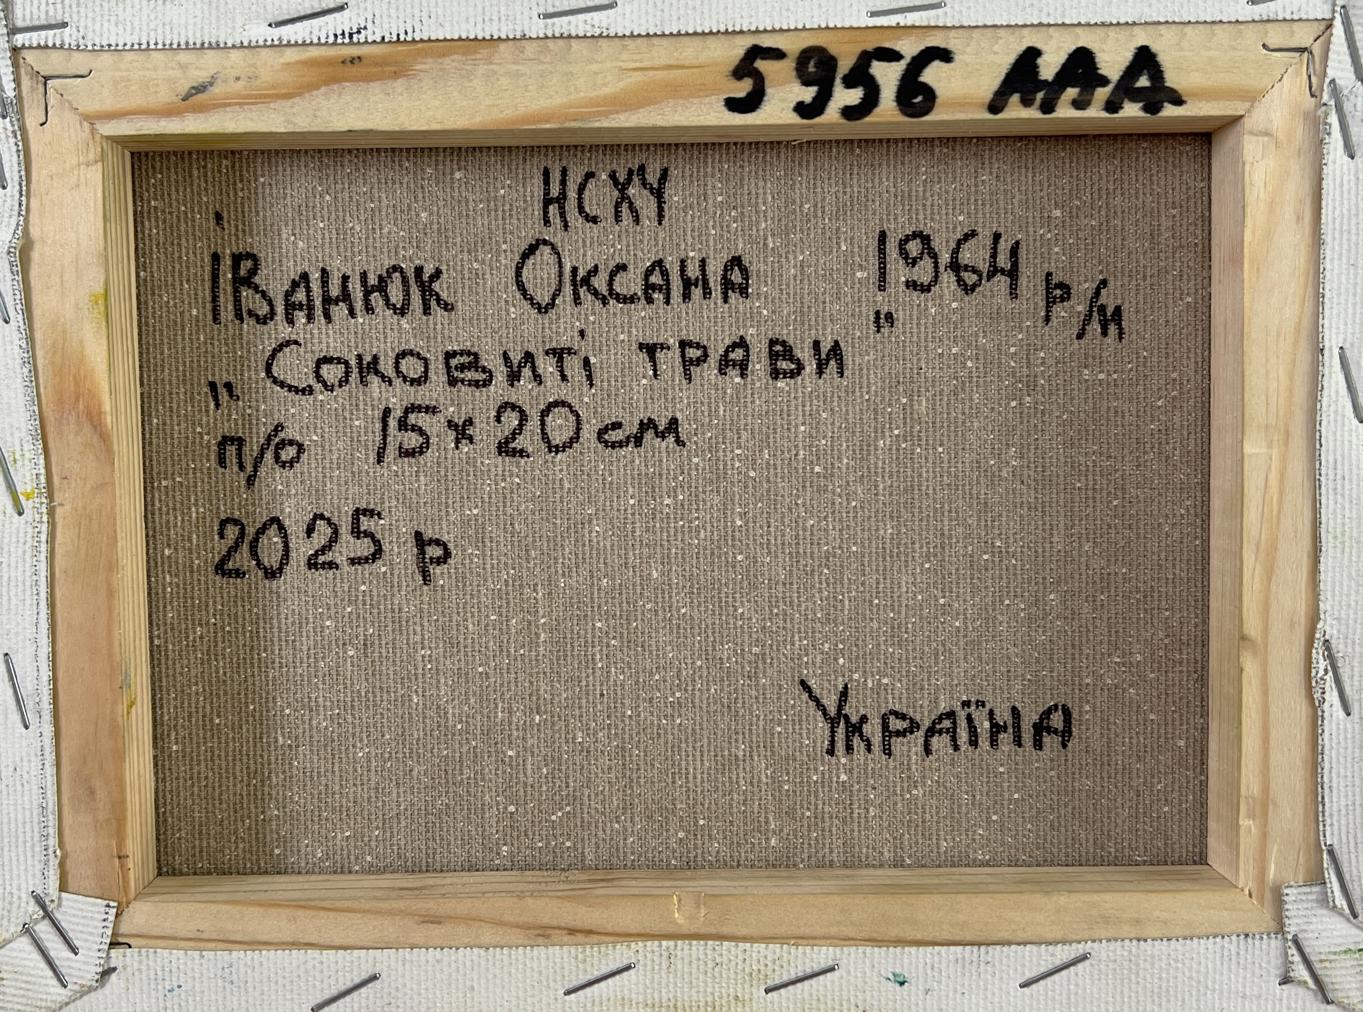 5956 AAA
НСХУ
Іванюк Оксана 1964 р/н
„Соковиті трави"
п/о 15х20 см
2025 р
Україна